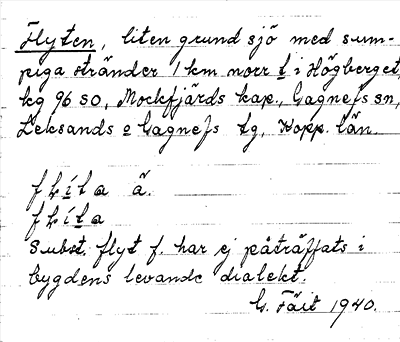 Flyten, liten grund sjö med sum-
piga stränder 1 km norr t i Högberget,
kg 96 SO, Mockfjärds kap., Gagnefs sn,
Leksands o Gagnefs tg, Kopp. län.
ä.
Subst. flyt f. har ej påträffats i
bygdens levande dialekt.
G. Täit 1940.